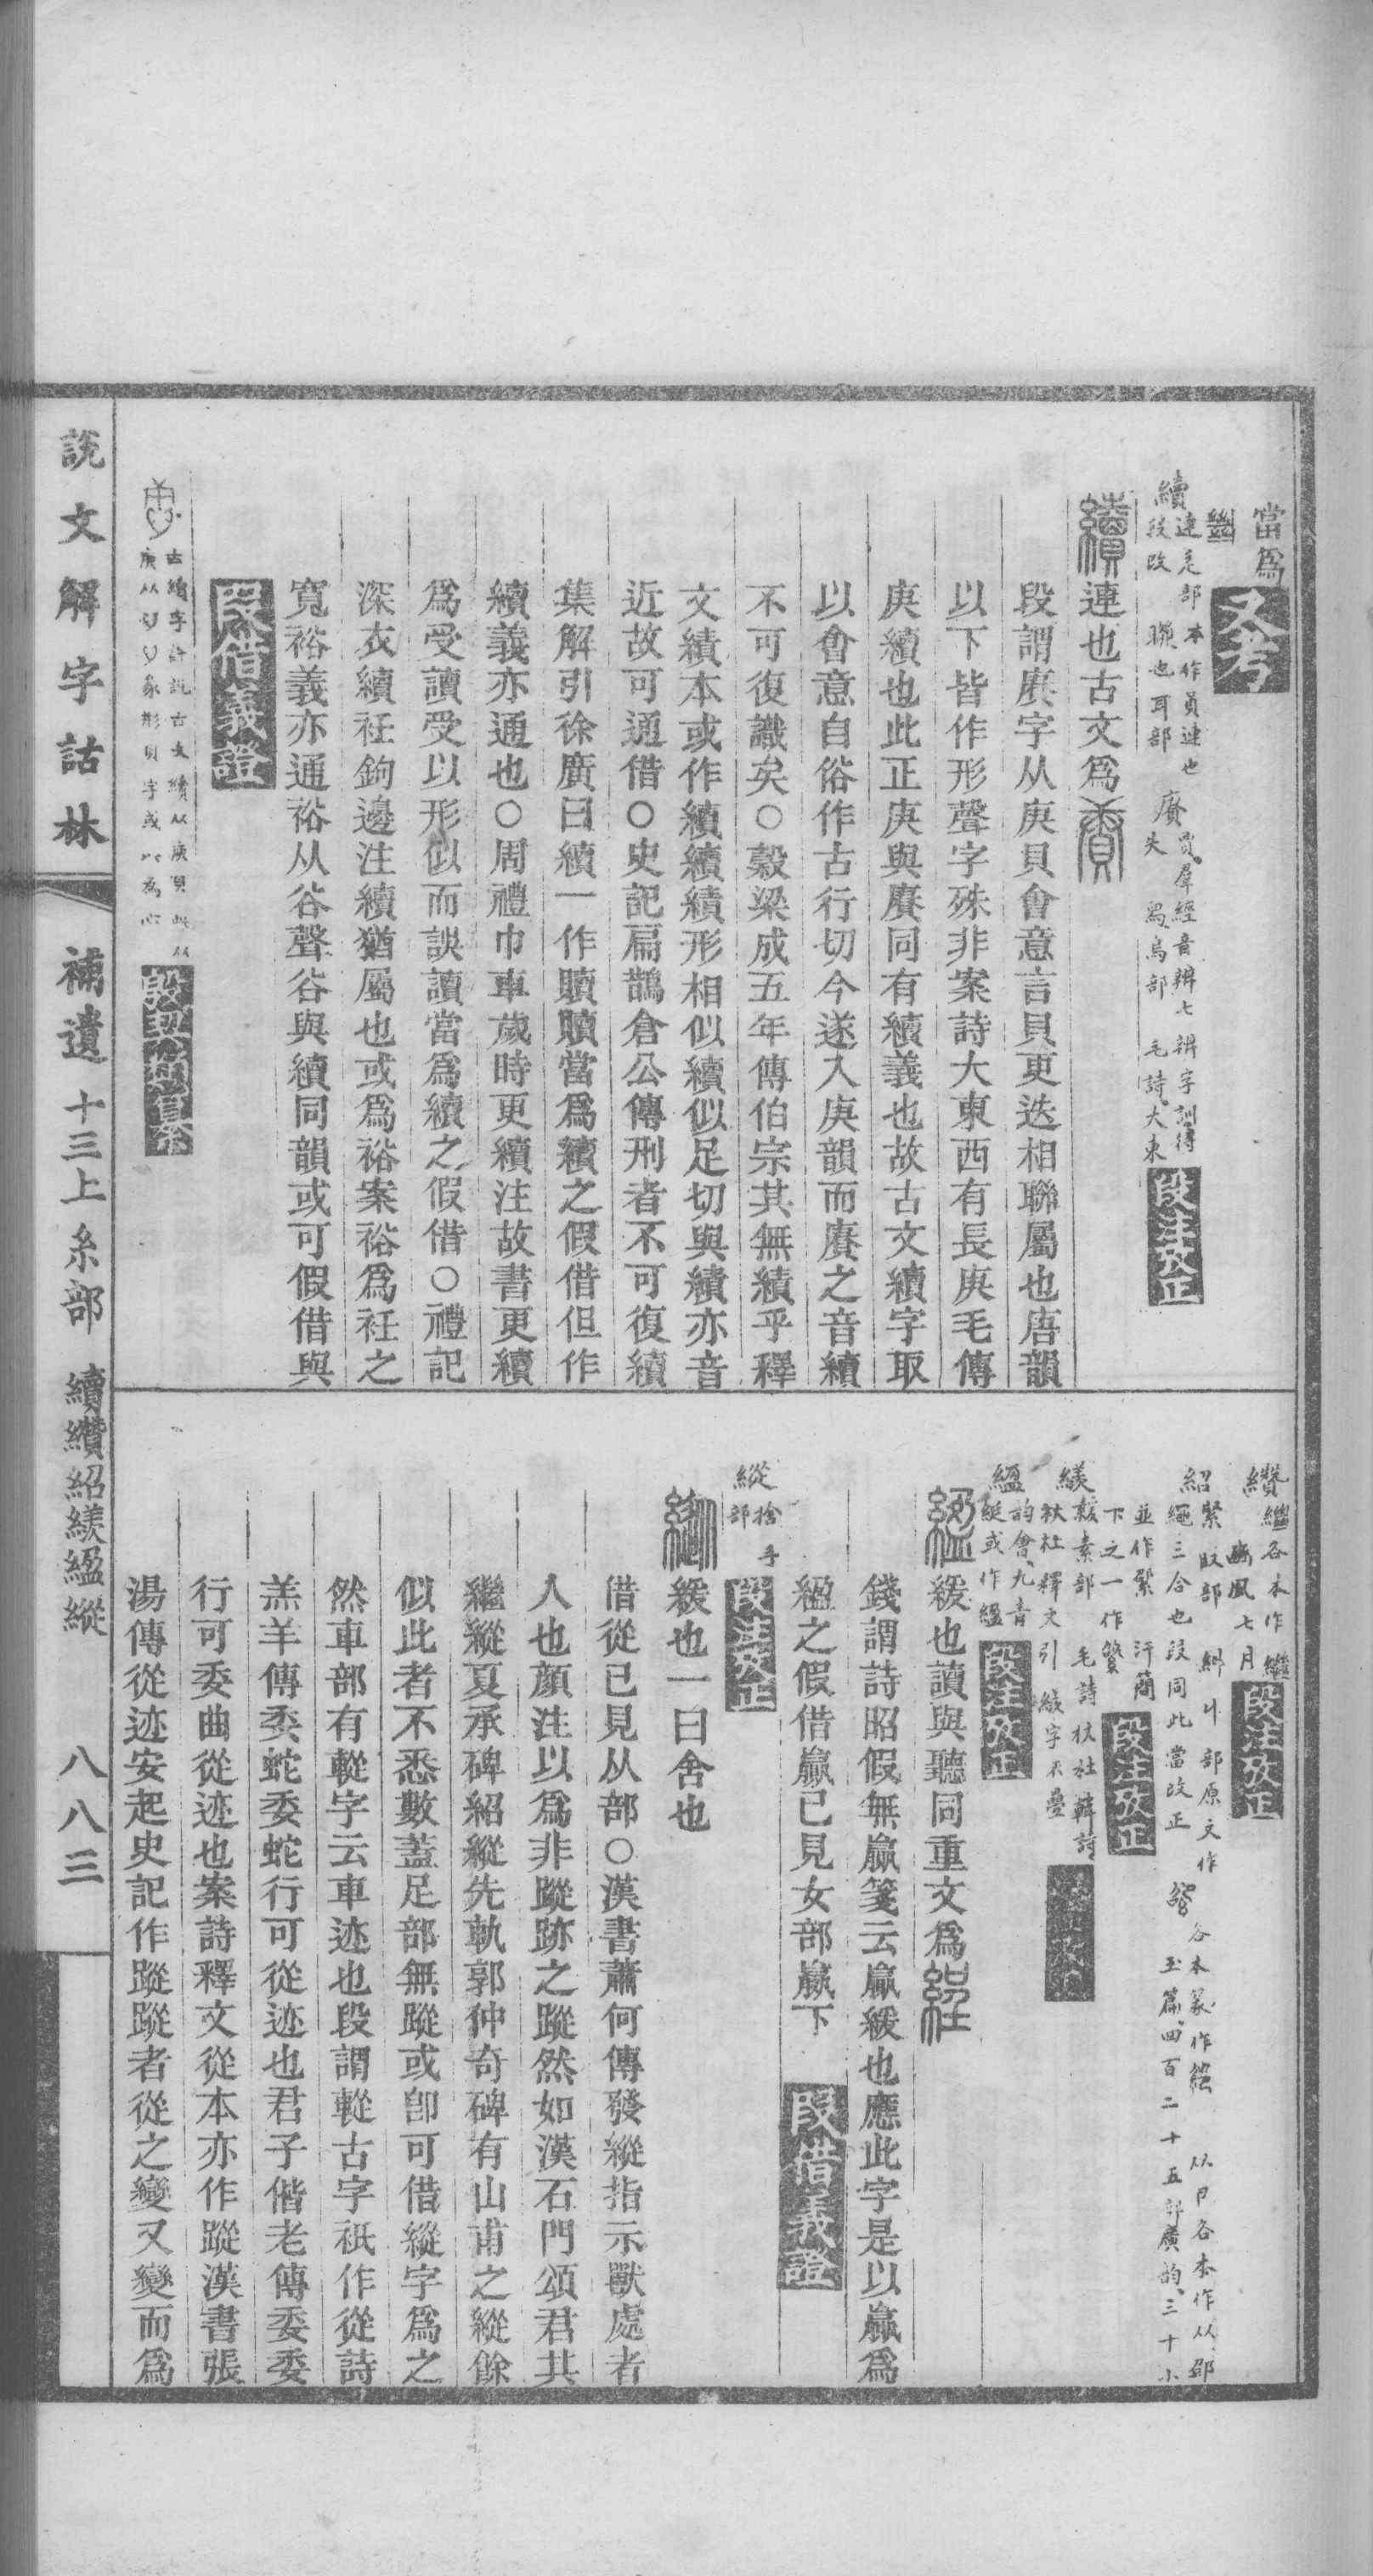 當爲𢇍又考
續連辵部本作員連也
段改聯也耳部
賡賈羣經音辨七辨字訓得
失舃烏部毛詩大東段注攷正
續連也古文爲賡
段謂賡字从庚貝會意言貝更迭相聯屬也唐韻
以下皆作形聲字殊非案詩大東西有長庚毛傳
庚續也此正庚與賡同有續義也故古文續字取
以會意自俗作古行切今遂入庚韻而賡之音續
不可復識矣○穀梁成五年傳伯宗其無績乎釋
文績本或作續續績形相似續似足切與績亦音
近故可通借○史記扁鵲倉公傳刑者不可復續
集解引徐廣曰續一作贖贖當爲續之假借但作
續義亦通也○周禮巾車歲時更續注故書更續
爲受讀受以形似而誤讀當爲續之假借○禮記
深衣續衽鉤邊注續猶屬也或爲裕案裕爲衽之
寬裕義亦通裕从谷聲谷與續同韻或可假借與
段借義證
古續字許説古文續从庚貝此从
庚从象形貝字或八爲心
說文解字詁林 補遺 十三上糸部 續纘紹縸縕縱 八八三
纘繼各本作繼
豳風七月段注攷正
紹緊臤部糾丩部原文作
繩三合也段同此當改正
各本篆作 从卪各本作从邵
玉篇四百二十五部廣韵三十小
並作緊汗簡
下之一作 段注攷正
素部毛詩杕杜韓詩
杕杜釋文引字不疊
縕韵會九青
綎或作縕段注攷正
緩也讀與聽同重文爲
錢謂詩昭假無贏箋云贏緩也應此字是以贏爲
縕之假借贏已見女部嬴下 段借義證
縱捨手
部段注攷正
縱緩也一曰舍也
借從已見从部○漢書蕭何傳發縱指示獸處者
人也顏注以爲非蹤跡之蹤然如漢石門頌君其
繼縱夏承碑紹縱先軌郭仲奇碑有山甫之縱餘
似此者不悉數蓋足部無蹤或卽可借縱字爲之
然車部有䡮字云車迹也段謂䡮古字衹作從詩
羔羊傳委蛇委蛇行可從迹也君子偕老傳委委
行可委曲從迹也案詩釋文從本亦作蹤漢書張
湯傳從迹安起史記作蹤蹤者從之變又變而爲